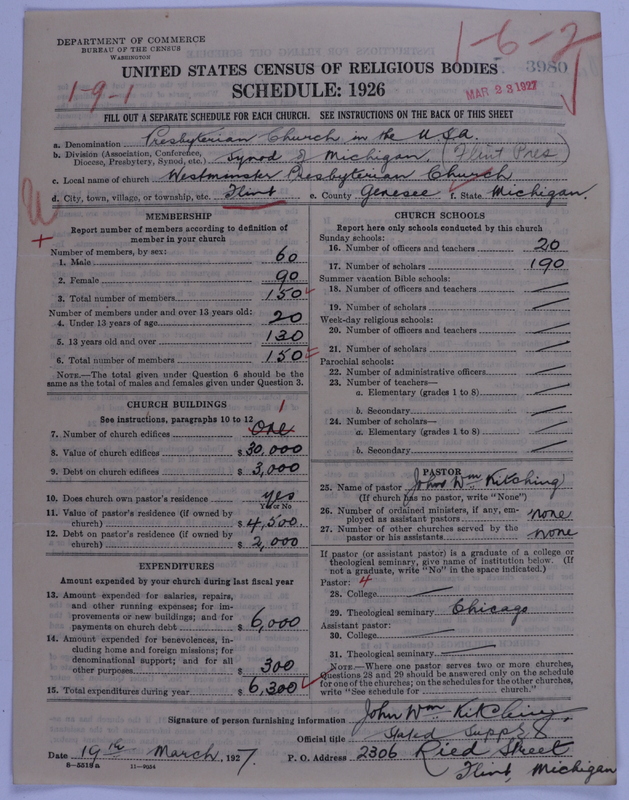 DEPARTMENT OF COMMERCE
BUREAU OF THE CENSUS
WASHINGTON
1-6-2
3980
1-9-1
MAR 23 1927
UNITED STATES CENSUS OF RELIGIOUS BODIES
SCHEDULE: 1926
FILL OUT A SEPARATE SCHEDULE FOR EACH CHURCH. SEE INSTRUCTIONS ON THE BACK OF THIS SHEET
a. Denomination Presbyterian Church in the U.S.A.
b. Division (Association, Conference, Diocese, Presbytery, Synod, etc.) Synod of Michigan. (Flint Pres)
c. Local name of church Westminster Presbyterian Church
d. City, town, village, or township, etc. Flint e. County Genesee f. State Michigan.
MEMBERSHIP
Report number of members according to definition of
member in your church
Number of members, by sex:
1. Male 60
2. Female 90
3. Total number of members 150
Number of members under and over 13 years old:
4. Under 13 years of age 20
5. 13 years old and over 130
6. Total number of members 150
NOTE.—The total given under Question 6 should be
same as the total of males and females given under Question 3.
CHURCH BUILDINGS
See instructions, paragraphs 10 to 12
1
7. Number of church edifices One
8. Value of church edifices $ 30,000
9. Debt on church edifices $ 3,000
10. Does church own pastor's residence yes
Yes or No
11. Value of pastor's residence (if owned by
church) $ 4,500.
12. Debt on pastor's residence (if owned by
church) $ 2,000
EXPENDITURES
Amount expended by your church during last fiscal year
13. Amount expended for salaries, repairs,
and other running expenses; for im-
provements or new buildings; and for
payments on church debt $ 6,000
14. Amount expended for benevolences, in-
cluding home and foreign missions; for
denominational support; and for all
other purposes $ 300
15. Total expenditures during year $ 6,300
CHURCH SCHOOLS
Report here only schools conducted by this church
Sunday schools:
16. Number of officers and teachers 20
17. Number of scholars 190
Summer vacation Bible schools:
18. Number of officers and teachers
19. Number of scholars
Week-day religious schools:
20. Number of officers and teachers
21. Number of scholars
Parochial schools:
22. Number of administrative officers
23. Number of teachers—
a. Elementary (grades 1 to 8)
b. Secondary
24. Number of scholars—
a. Elementary (grades 1 to 8)
b. Secondary
PASTOR
25. Name of pastor John Wm Kitching
(If church has no pastor, write "None")
26. Number of ordained ministers, if any, em-
ployed as assistant pastors none
27. Number of other churches served by the
pastor or his assistants none
If pastor (or assistant pastor) is a graduate of a college or
theological seminary, give name of institution below. (If
not a graduate, write "No" in the space indicated.)
Pastor: 4
28. College
29. Theological seminary Chicago
Assistant pastor:
30. College
31. Theological seminary
NOTE.—Where one pastor serves two or more churches,
Questions 28 and 29 should be answered only on the schedule
for one of the churches; on the schedules for the other churches,
write "See schedule for church."
Signature of person furnishing information John Wm Kitching,
Official title Stated Supply
Date 19th March, 1927. P. O. Address 2306 Ried Street
8-5319a 11-9654 Flint, Michigan